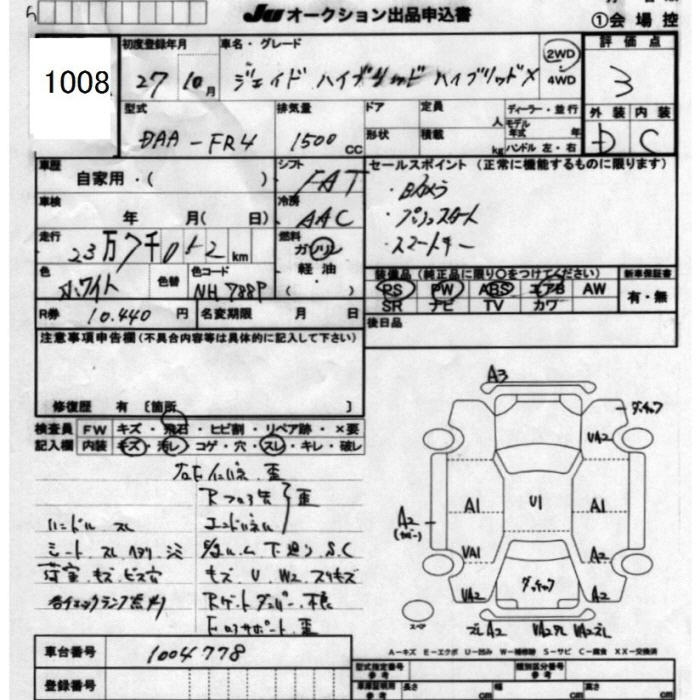 JU オークション出品申込書
①会場控
1008
初度登録年月
27 10月
車名・グレード
ジェイド ハイブリッド ハイブリッドX
2WD
4WD
評価点
3
外装 内装
D C
型式
DAA-FR4
排気量
1500 CC
ドア
形状
定員 人
積載 kg
ディーラー・並行
モデル年式 年
ハンドル 左・右
車歴
自家用・( )
シフト
FAT
セールスポイント (正常に機能するものに限ります)
・Bカメラ
・プッシュスタート
・スマートキー
車検
年 月( 日)
冷房
AAC
走行
23万7千052km
燃料
ガソリン
軽油
( )
色
ホワイト
色替
色コード
NH788P
装備品 (純正品に限り○をつけてください)
新車保証書
PS PW ABS エアB AW
SR ナビ TV カワ
有・無
R券 10.440円
名変期限 月 日
後日品
注意事項申告欄 (不具合内容等は具体的に記入して下さい)
修復歴 有 [箇所 ]
検査員記入欄
FW キズ・飛石・ヒビ割・リペア跡・×要
内装 キズ・汚レ・コゲ・穴・スレ・キレ・破レ
ハンドル スレ
シート スレ
荷室 キズ ビス穴
下廻り S.C
キズ U W2 スリキズ
Fロアサポート 歪
A3
UA2
A1
U1
A1
A2
VA1
A2
VA2
A2
A2
A=キズ E=エクボ U=凹み W=補修跡 S=サビ C=腐食 XX=交換済
車台番号
1004778
登録番号
型式指定番号 参考
類別区分番号 参考
車庫証明用 参考
長さ cm
幅 cm
高さ cm